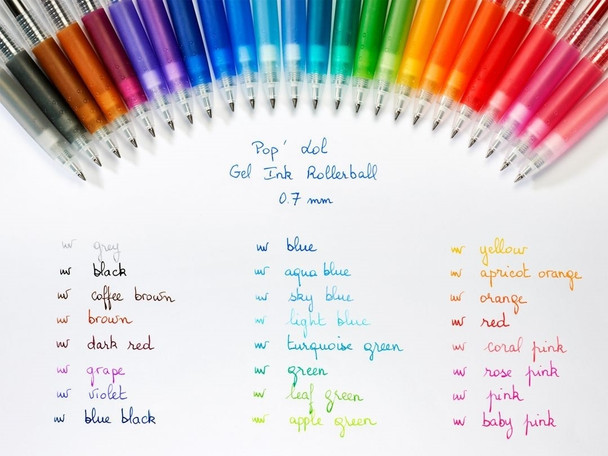 Pop' Lol
Gel Ink Rollerball
0.7 mm
grey
black
coffee brown
brown
dark red
grape
violet
blue black
blue
aqua blue
sky blue
light blue
turquoise green
green
leaf green
apple green
yellow
apricot orange
orange
red
coral pink
rose pink
pink
baby pink